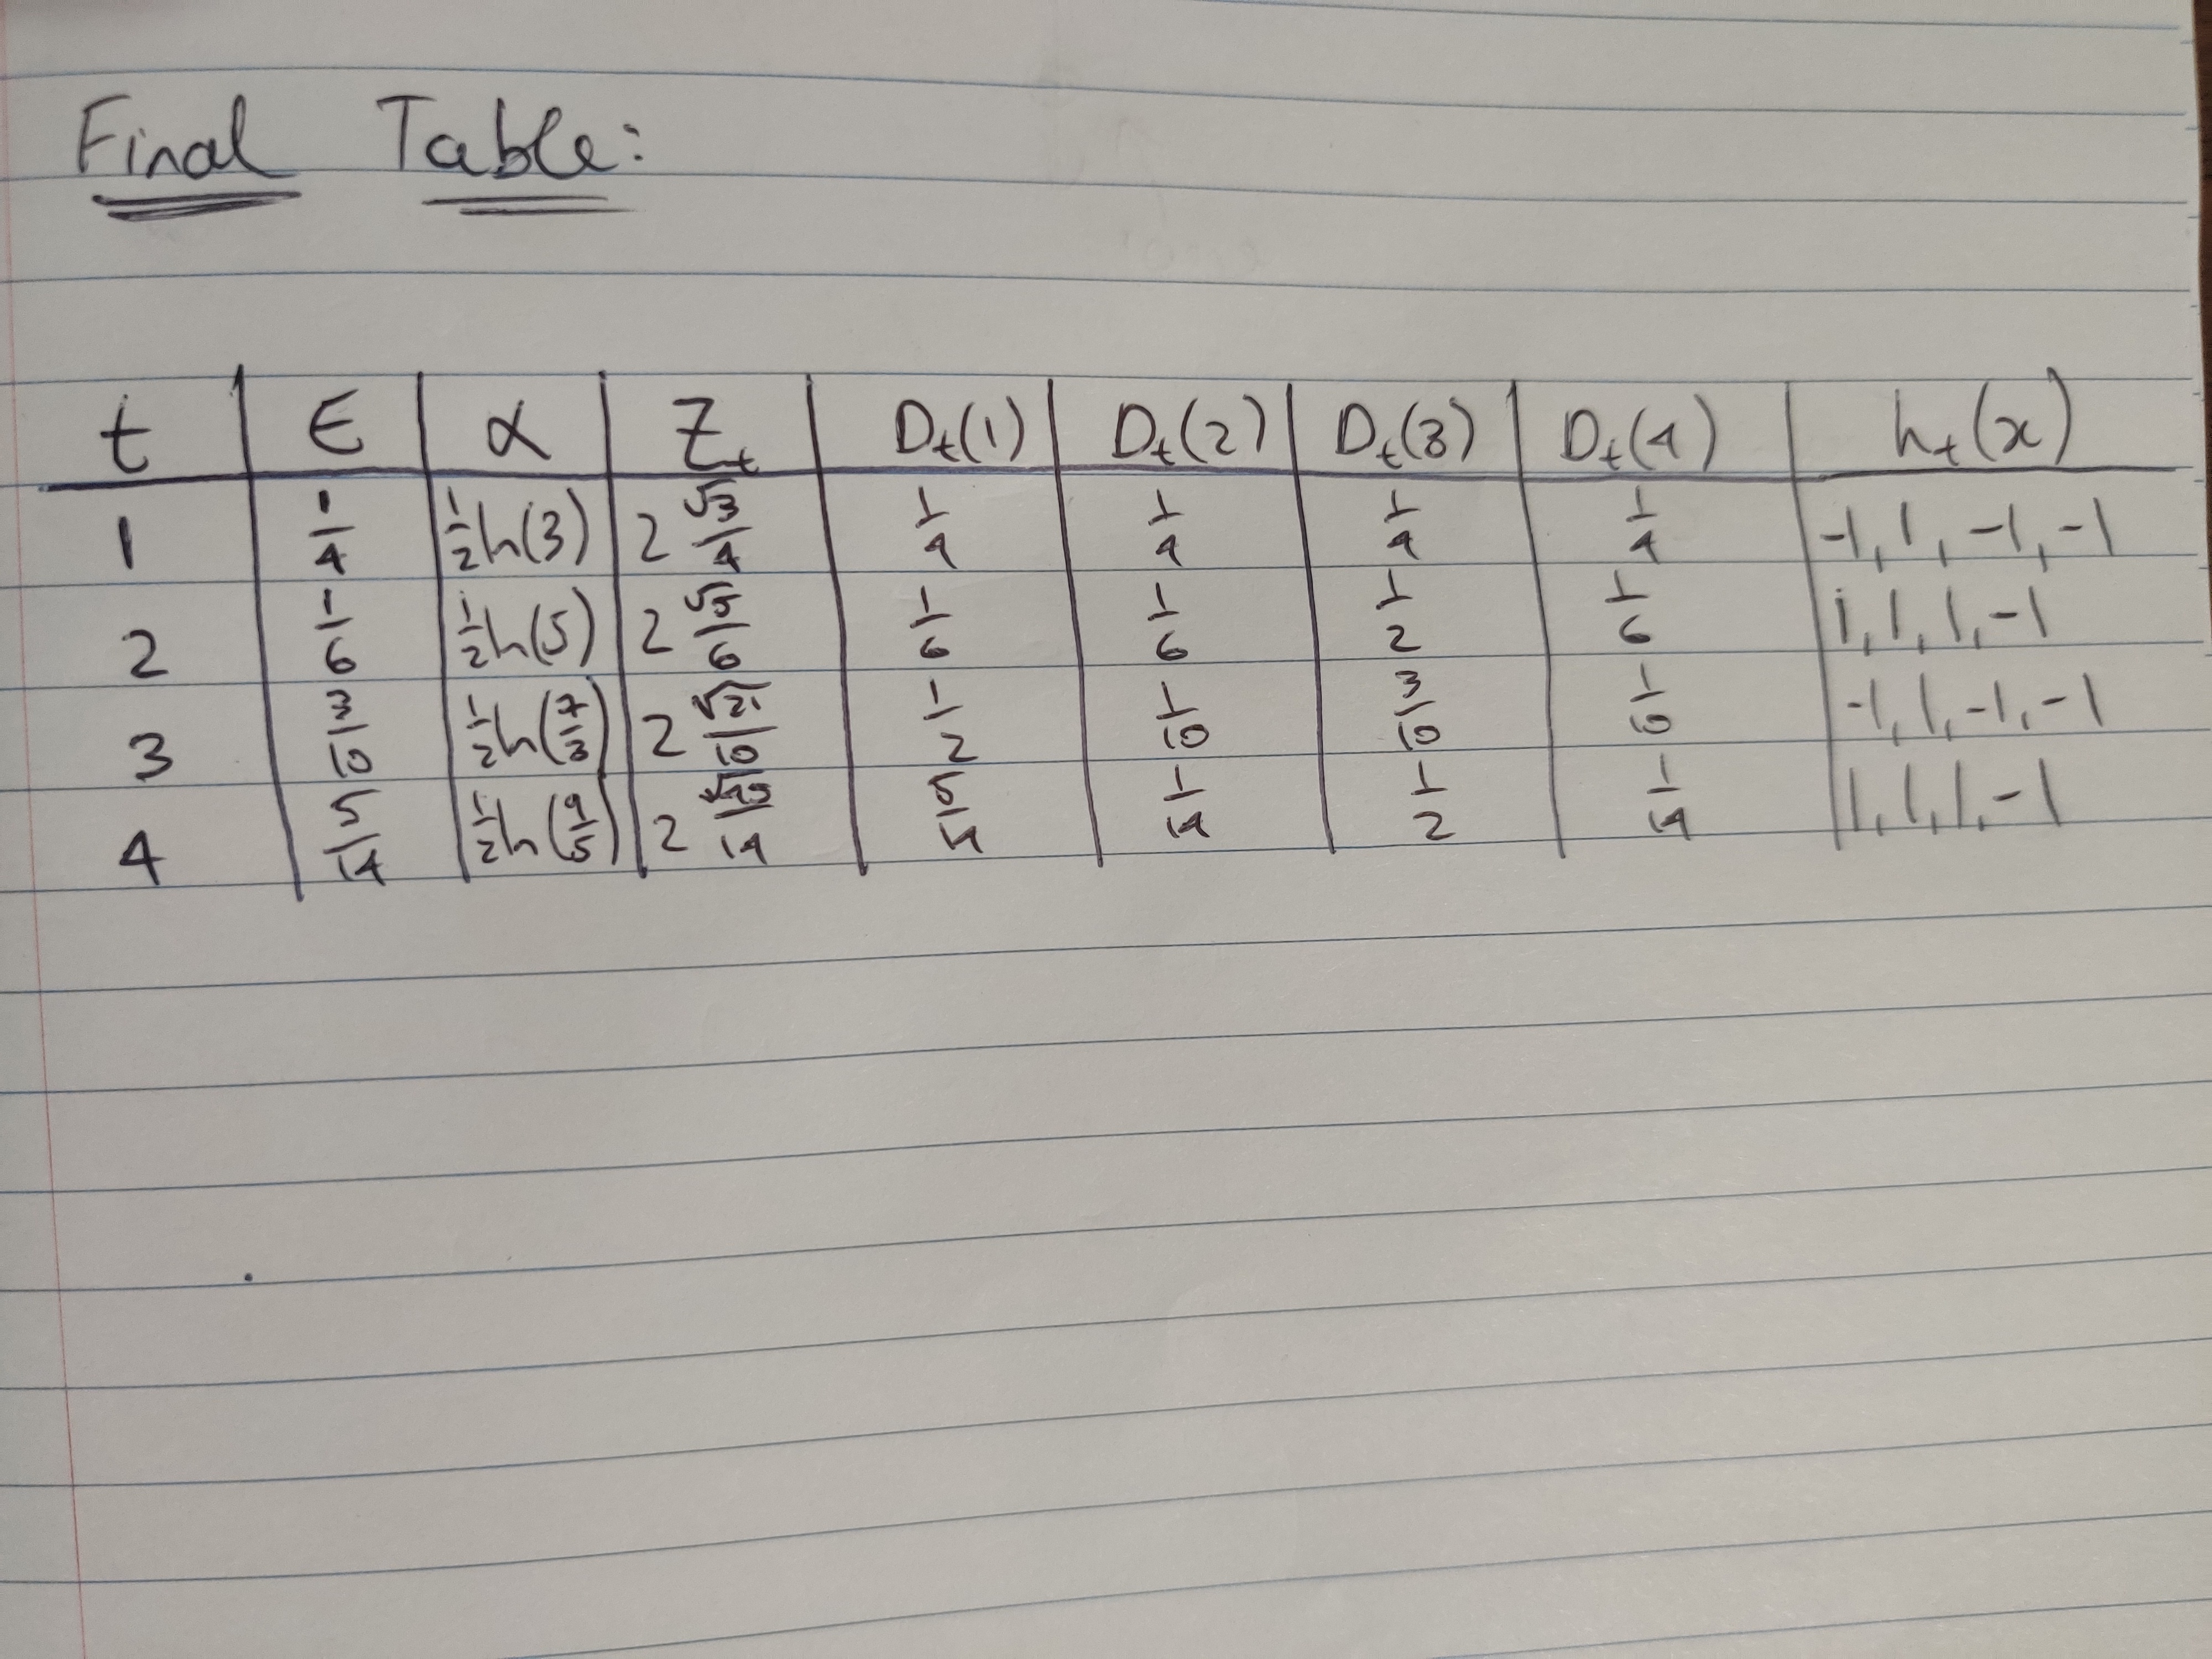 Final Table:
t | ε | α | Z_t | D_t(1) | D_t(2) | D_t(3) | D_t(4) | h_t(x)
1 | 1/4 | 1/2 ln(3) | 2 √3/4 | 1/4 | 1/4 | 1/4 | 1/4 | -1, 1, -1, -1
2 | 1/6 | 1/2 ln(5) | 2 √5/6 | 1/6 | 1/6 | 1/2 | 1/6 | 1, 1, 1, -1
3 | 3/10 | 1/2 ln(7/3) | 2 √21/10 | 1/2 | 1/10 | 3/10 | 1/10 | -1, 1, -1, -1
4 | 5/14 | 1/2 ln(9/5) | 2 √45/14 | 5/14 | 1/14 | 1/2 | 1/14 | 1, 1, 1, -1